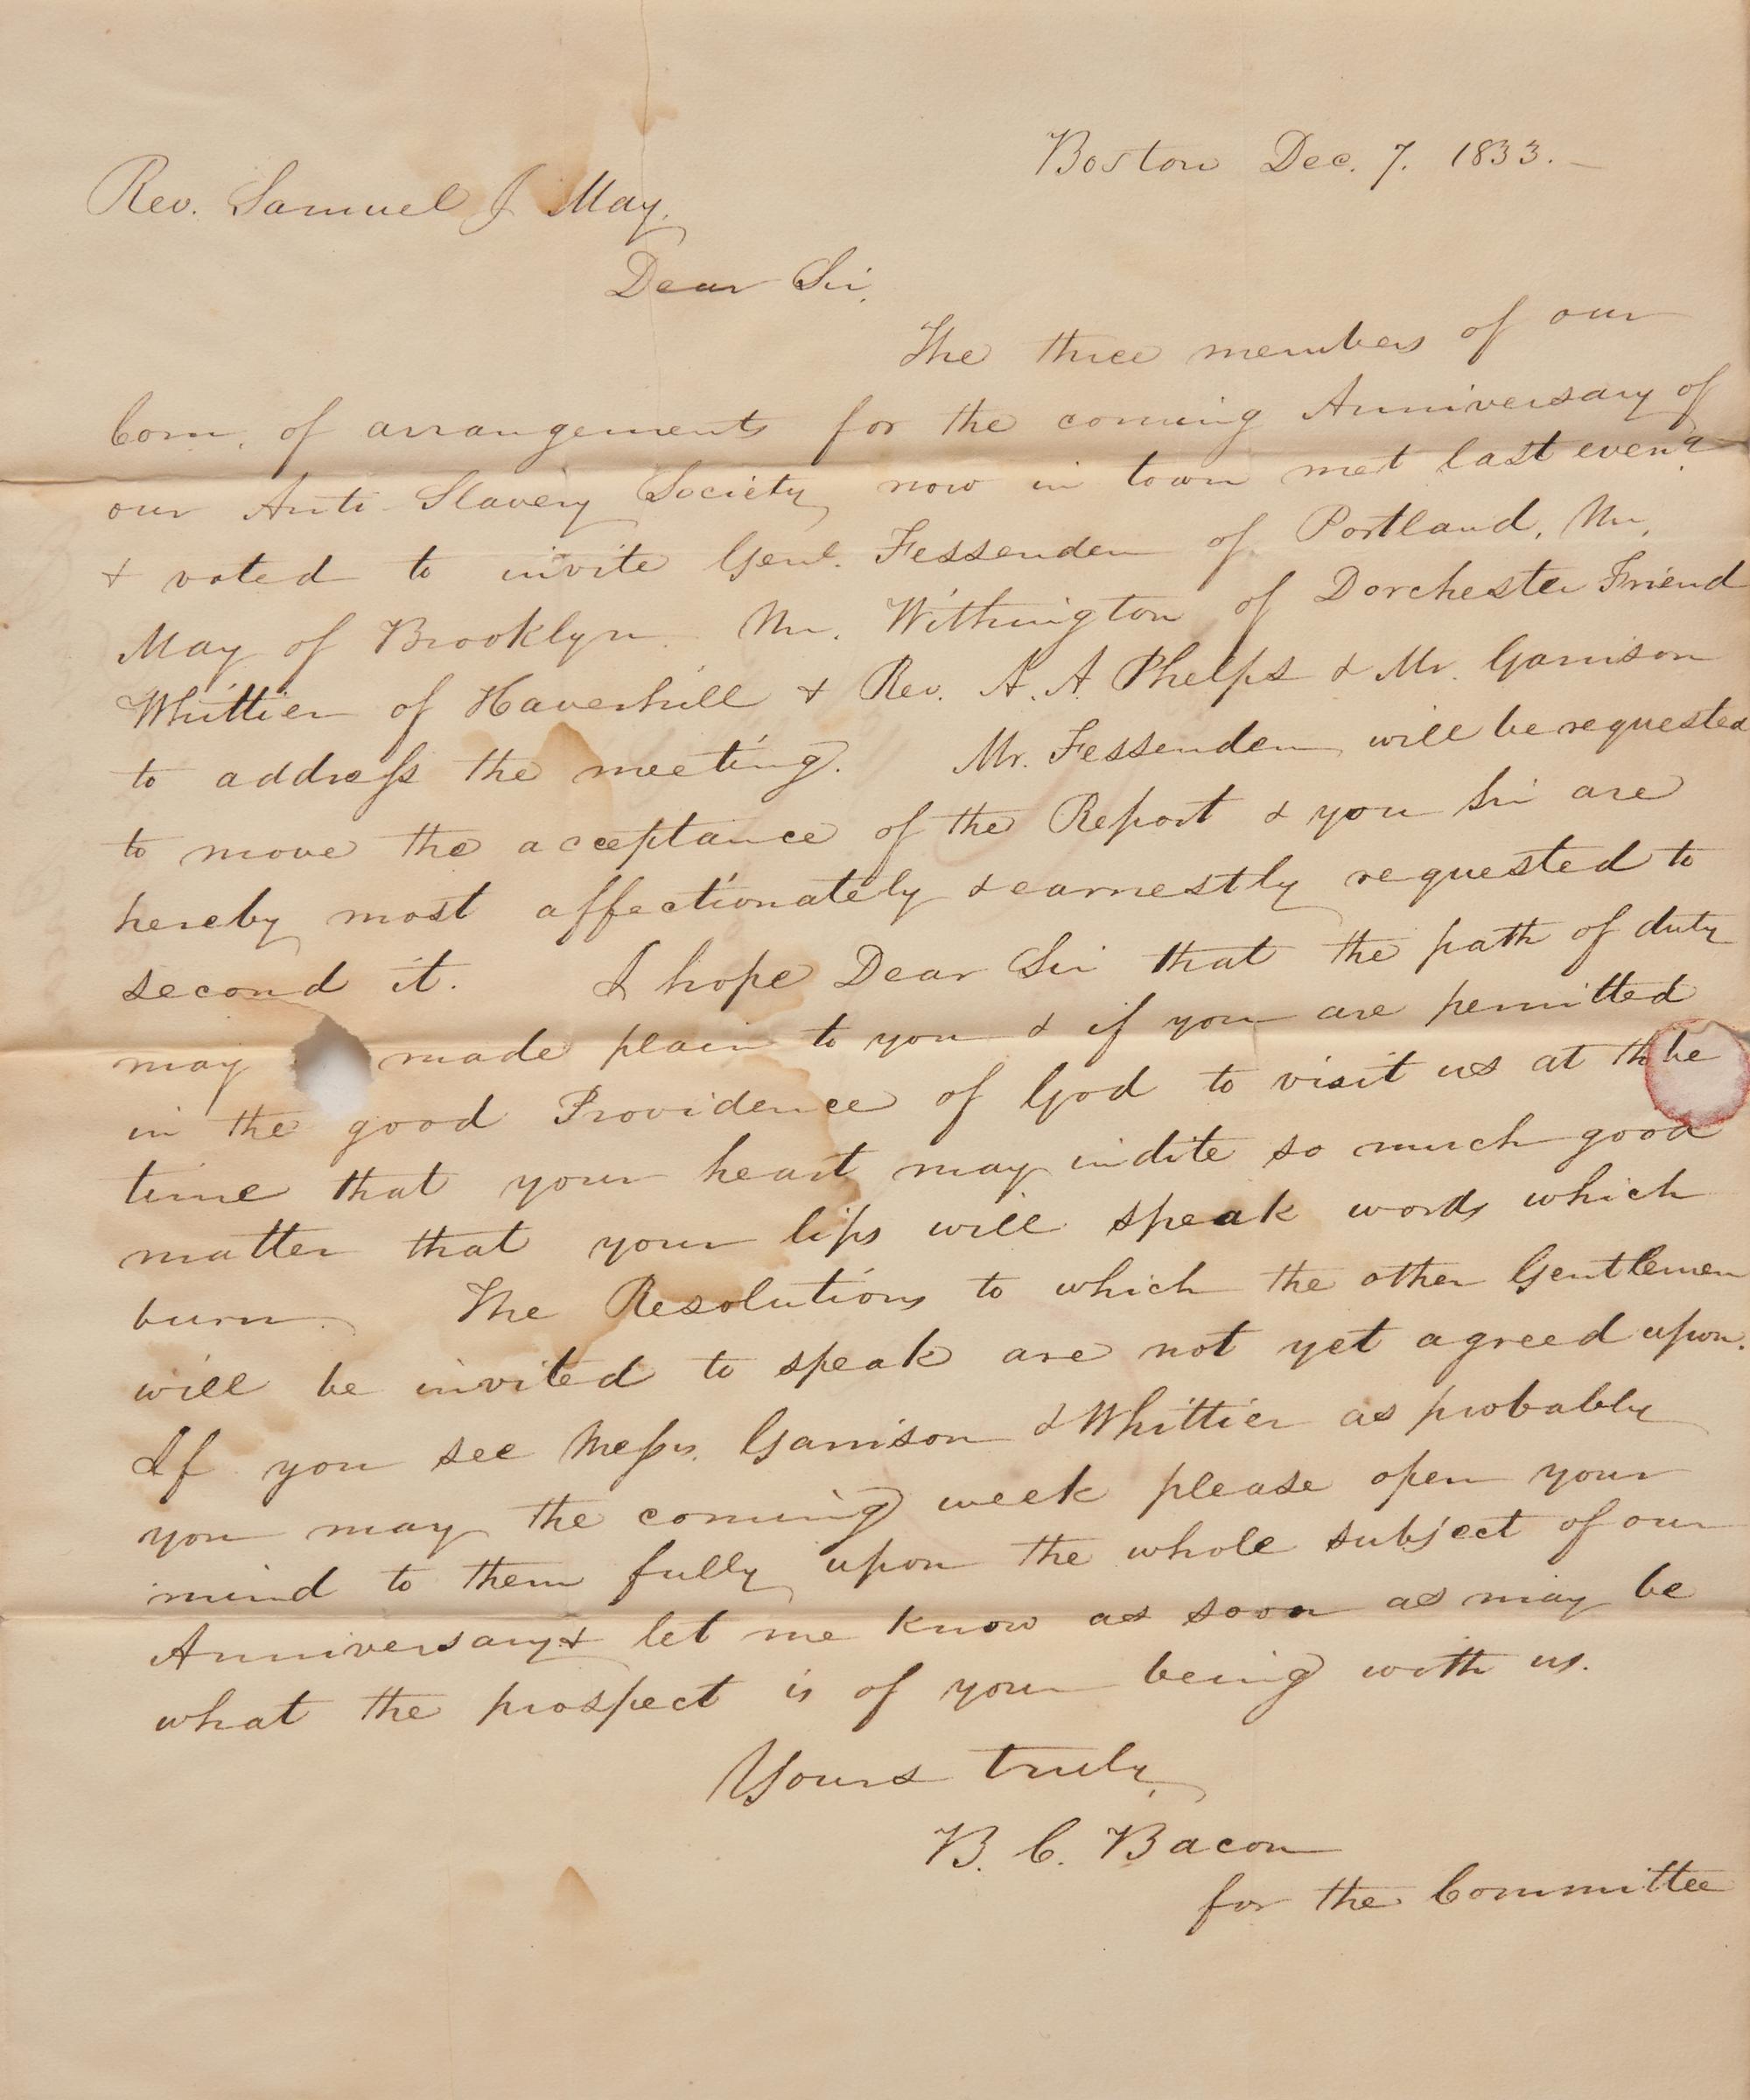 Boston Dec. 7. 1833. –
Rev. Samuel J May.
Dear Sir.
The three members of our
Com. of arrangements for the coming Anniversary of
our Anti-Slavery Society now in town met last eveng
& voted to invite Genl. Fessenden of Portland, Mr.
May of Brooklyn. Mr. Withington of Dorchester Friend
Whittier of Haverhill & Rev. A. A. Phelps & Mr. Garrison
to address the meeting. Mr. Fessenden will be requested
to move the acceptance of the Report & you Sir are
hereby most affectionately & earnestly requested to
second it. I hope Dear Sir that the path of duty
may made plain to you & if you are permitted
in the good Providence of God to visit us at the be
time that your heart may indite so much good
matter that your lips will speak words which
burn. The Resolutions to which the other Gentlemen
will be invited to speak are not yet agreed upon.
If you see Messrs. Garrison & Whittier as probably
you may the coming week please open your
mind to them fully upon the whole subject of our
Anniversary & let me know as soon as may be
what the prospect is of your being with us.
Yours truly,
B. C. Bacon
for the Committee